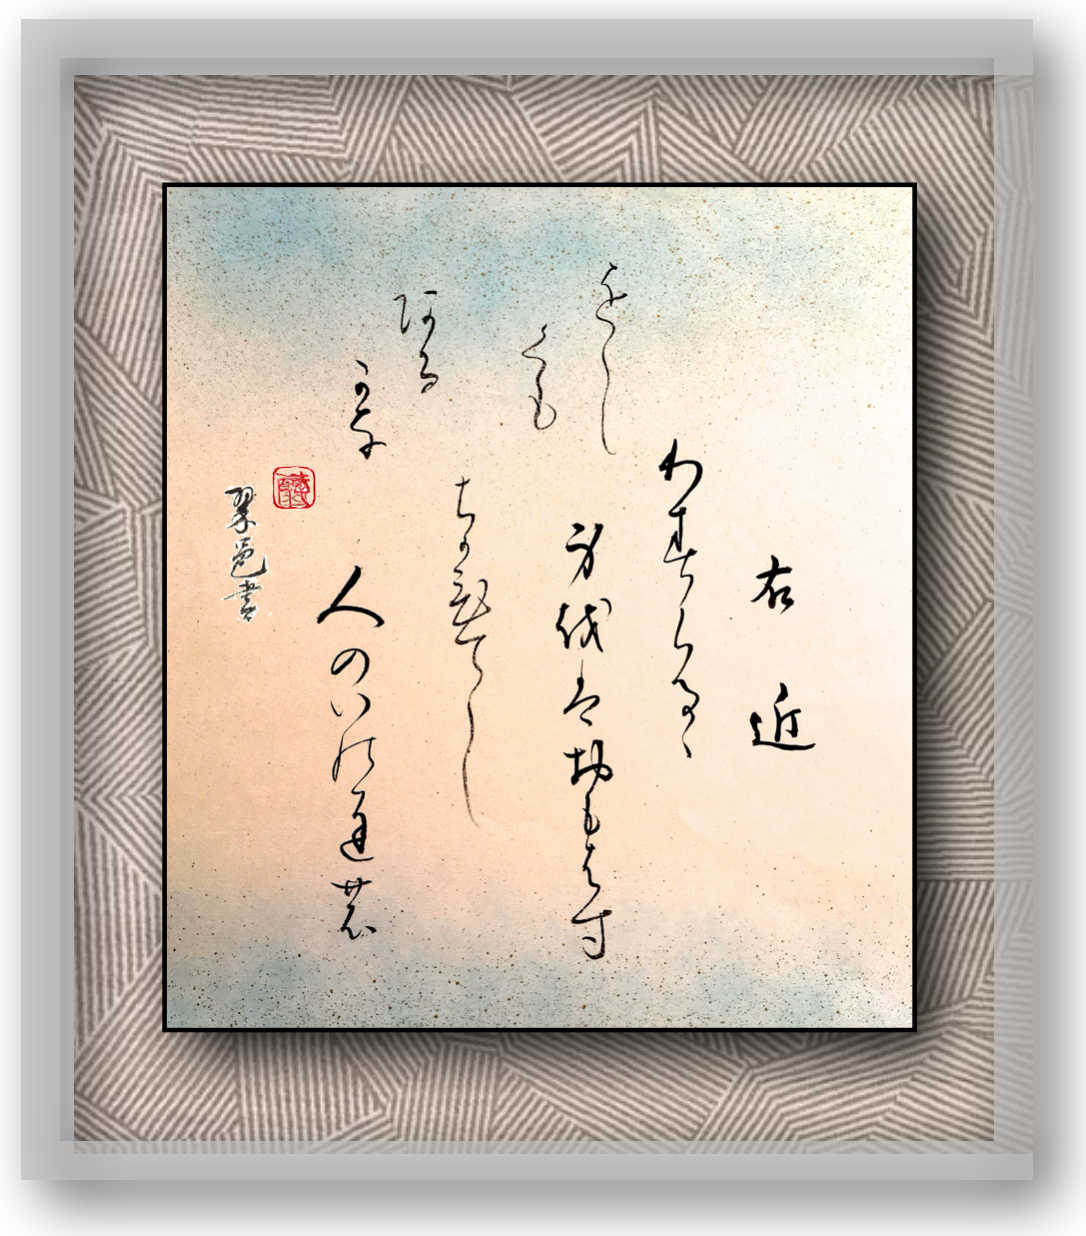 右近
わすらるゝ
身越者おもはす
ちかひてし
人のいのちの
をし
くも
ある
かな
翠邑書